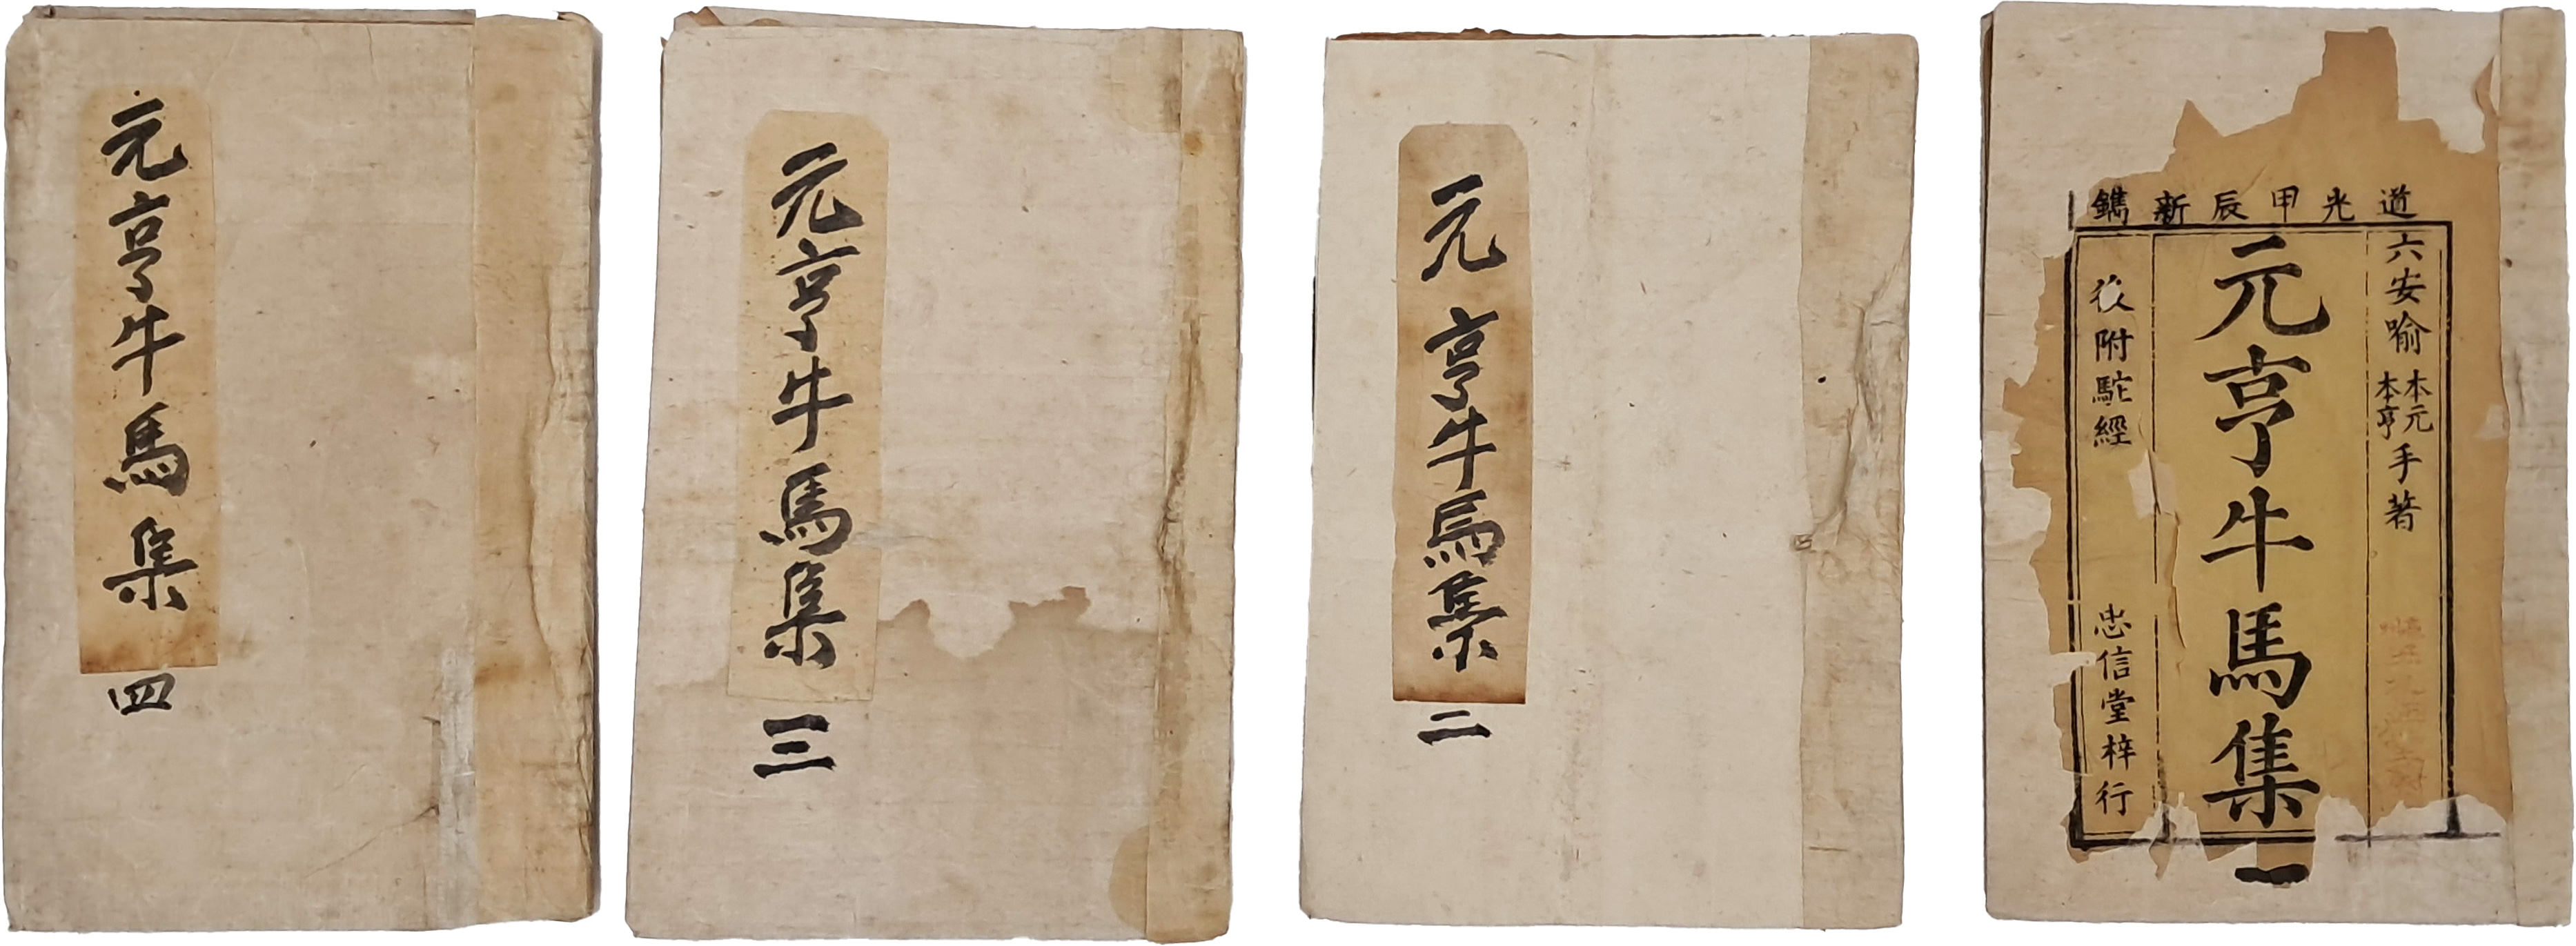 道光甲辰新鐫
六安喻本元本亨手著
元亨牛馬集
後附駝經
忠信堂梓行
一
元亨牛馬集
二
元亨牛馬集
三
元亨牛馬集
四